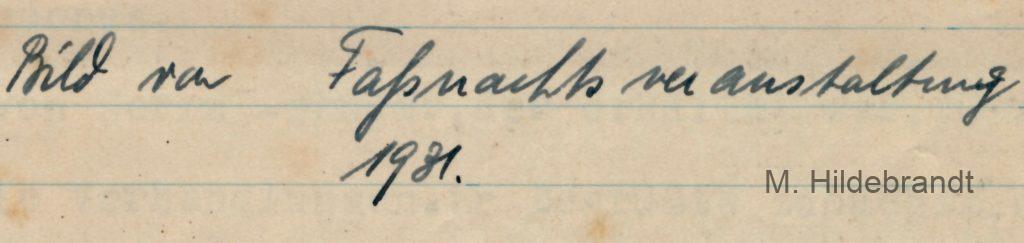 Bild von Faßnachtsveranstaltung
1931.
M. Hildebrandt